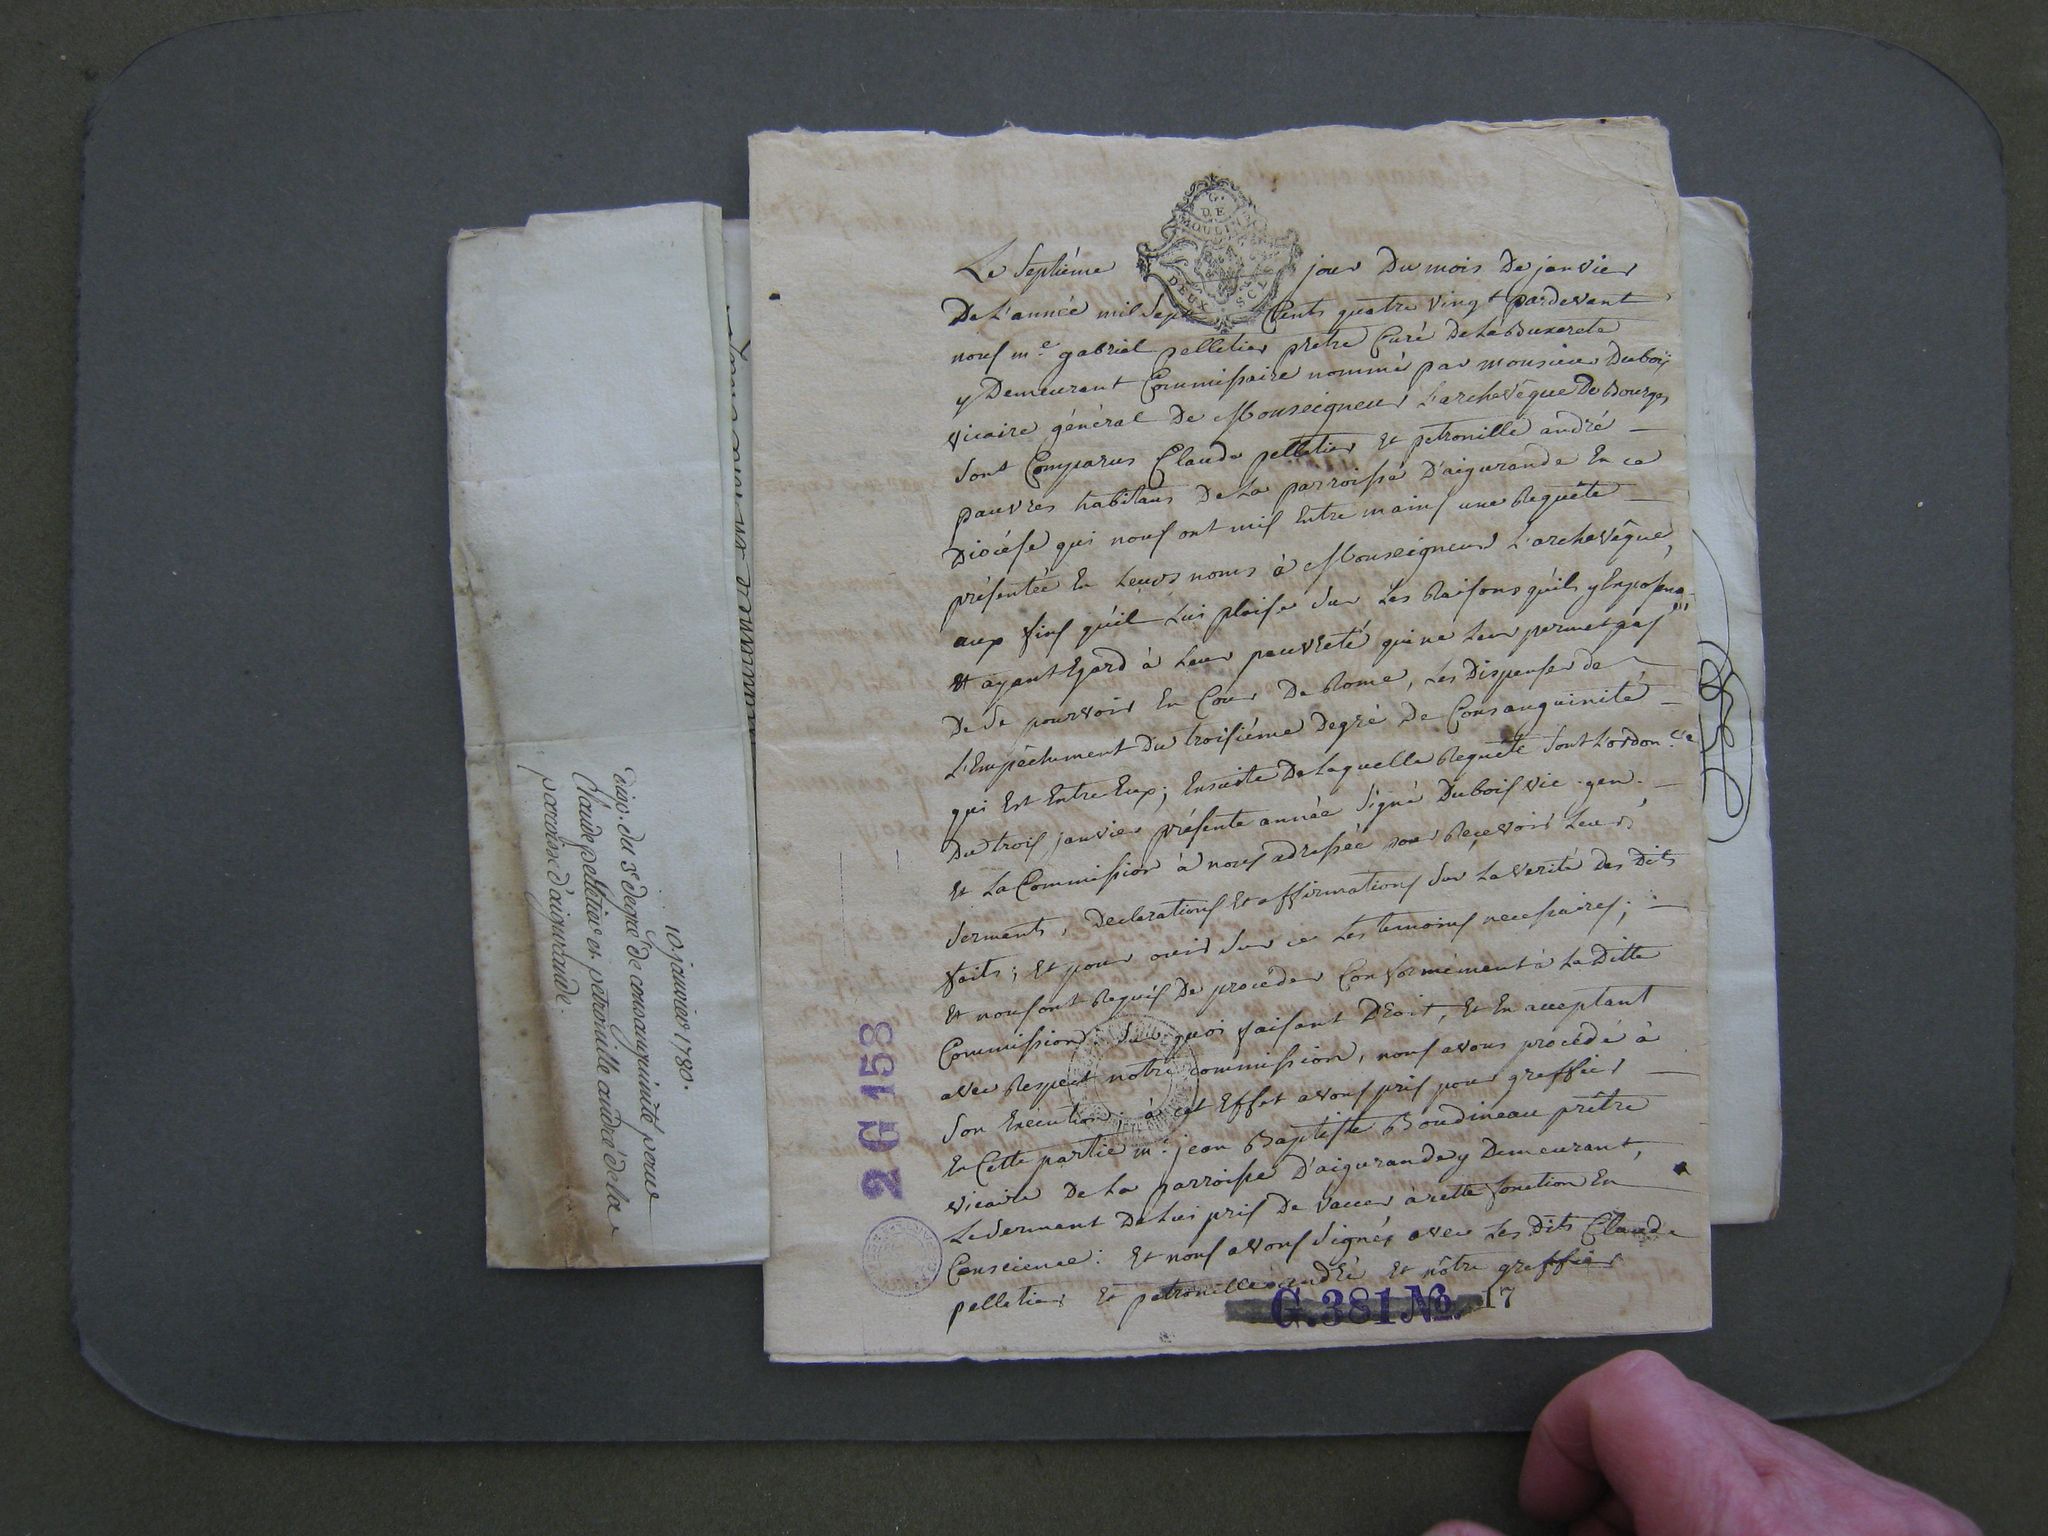 G. DE
MOULINS
DEUX SOLS
Le septiéme jour Du mois De janvier
De L'année mil sept Cents quatre vingt pardevant
nous me. gabriel pelletier prêtre Curé De La Buxerete
y Demeurant Commissaire nommé par monsieur Dubois
vicaire général De Monseigneur L'archevêque De Bourges
sont Comparus Claude pelletier Et petronille andré
pauvres habitans De La parroisse D'aigurande En ce
Diocése qui nous ont mis Entre mains une Requête
présentée En Leurs noms à Monseigneur L'archevêque,
aux fins qu'il Lui plaise sur Les Raisons qu'ils y Exposent
Et ayant Egard à Leur pauvreté qui ne Leur permet pas
De se pourvoir En Cour De Rome, Les Dispenser de
L'Empêchement Du troisiéme Degré De Consanguinité
qui Est Entre Eux; Ensuite De Laquelle Requête sont Lordon.ce
Du trois janvier présente année signé Dubois vic. gen.
Et La Commission à nous adressée pour Recevoir Leurs
serments, Declarations Et affirmations sur La verité des Dits
faits; Et pour ouir sur ce Les temoins necessaires;
Et nous ont Requis De procéder Conformément à La Ditte
Commission. sur quoi faisant Droit, Et En acceptant
avec Respect notre commission, nous avons procédé à
son Exécution; à cet Effet avons pris pour greffier
En Cette partie me. jean Baptiste Boudineau prêtre
vicaire De La parroisse D'aigurande y Demeurant,
Le serment De Lui pris De vacer a cette fonction En
Conscience: Et nous avons signés avec Les Dits Claude
pelletier Et petronille andré Et nôtre greffier
G. 381 No. 17
2 G 158
10. janvier 1780.
disp. du 3e degré de consanguinité pour
Claude pelletier et petronille andré de la
parroisse d'aigurande.